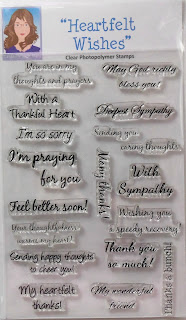 "Heartfelt
Wishes"
Clear Photopolymer Stamps
You are in my
thoughts and prayers
May God richly
bless you!
With a
Thankful Heart
Deepest Sympathy
I'm so sorry
Sending you
caring thoughts
I'm praying
for you
Many thanks!
With
Sympathy
Feel better soon!
Wishing you
a speedy recovery!
Your thoughtfulness
warms my heart!
Thank you
so much!
Sending happy thoughts
to cheer you!
Thanks a bunch!
My heartfelt
thanks!
My wonderful
friend